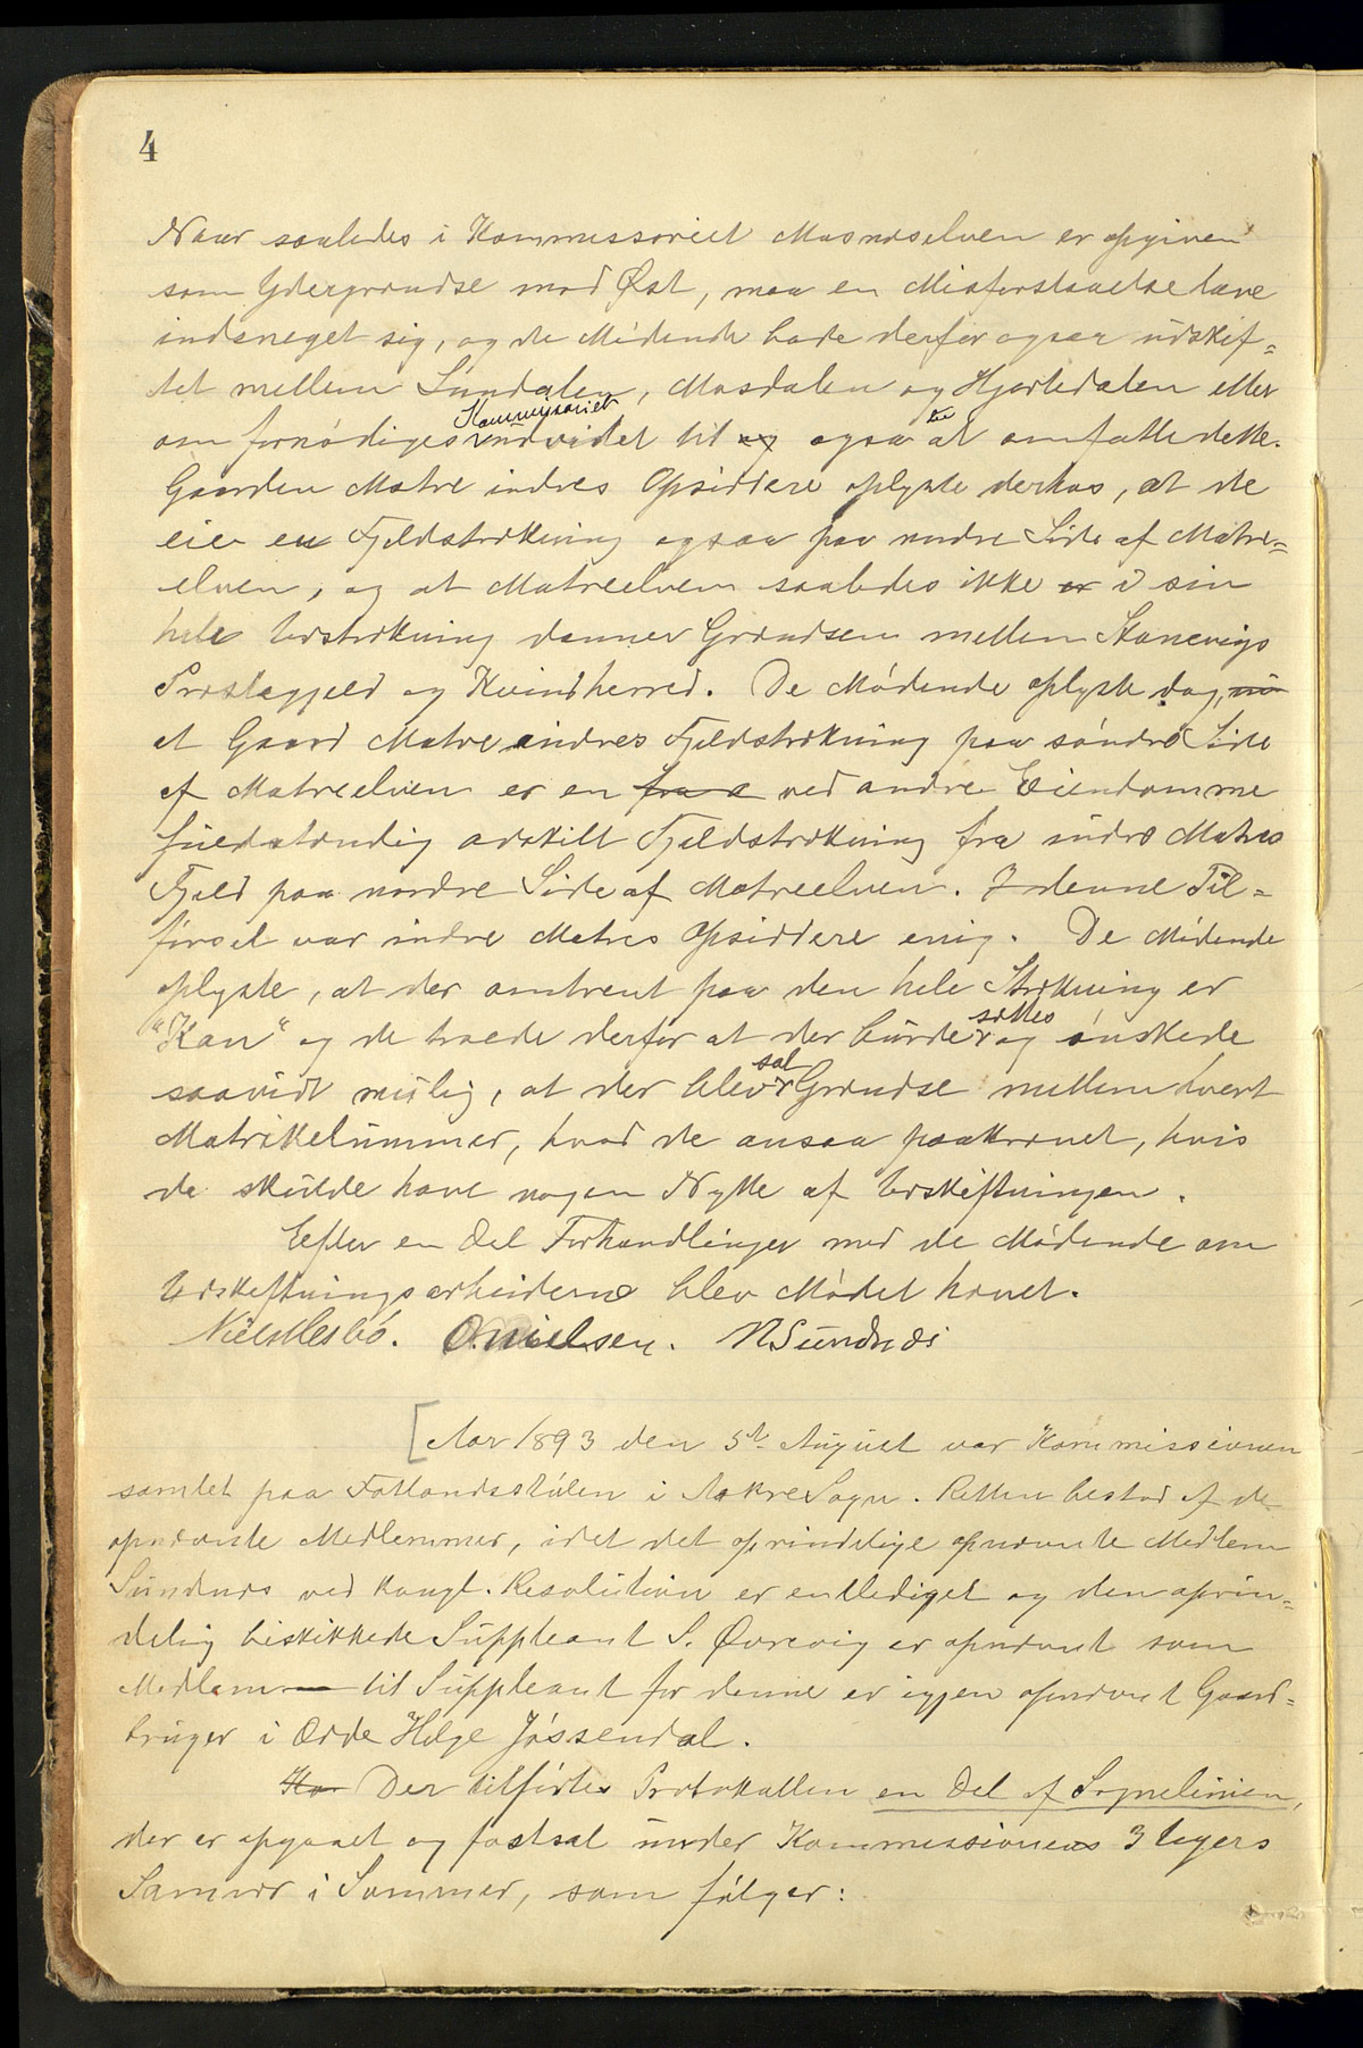 4
Naar saaledes i Kommissoriet Mosneselven er opgiven
som Ydergrændse mod Øst, maa en Misforstaaelse have
indsneget sig, og de Mødende bade derfor ogsaa udskif=
tet mellem Sundalen, Mosdalen og Hjortedalen eller
om fornødiges Kommissoriet udvidet til og ogsaa at omfatte dette.
Gaarden Matre indres Opsiddere oplyste derhos, at de
eier en Fjeldstrækning ogsaa paa nordre Side af Matre=
elven, og at Matreelven saaledes ikke er i sin
hele Udstrækning danner Grændsen mellem Skonevigs
Præstegjeld og Kvindherred. De Mødende oplyste dog,
at Gaard Matre indres Fjeldstrækning paa søndre Side
af Matreelven er en fra ved andre Eiendomme
fuldstændig adskilt Fjeldstrækning fra indre Matres
Fjeld paa nordre Side af Matreelven. I denne Til=
førsel var indre Matres Opsiddere enig. De Mødende
oplyste, at der omtrent paa den hele Strækning er
"Kan" og de troede derfor at der burde sættes og ønskede
saavidt mulig, at der blev sat Grændse mellem hvert
Matrikelnummer, hvad de ansaa paakrævet, hvis
de skulde have nogen Nytte af Udskiftningen.
Efter en Del Forhandlinger med de Mødende om
Udskiftningsarbeiderne blev Mødet hævet.
Niels Hesbø. O. Nielsen. N Sundnæs
[Aar 1893 den 5te August var Kommissionen
samlet paa Fatlandsstølen i Aakre Sogn. Retten bestod af de
opnævnte Medlemmer, idet det oprindelige opnævnte Medlem
Sundnæs ved kongl. Resolution er entlediget og den oprin=
delig beskikkede Suppleant S. Øvrevig er opnævnt som
Medlem – til Suppleant for denne er igjen opnævnt Gaard=
bruger i Odde Helge Jøssendal.
Ko Der tilførtes Protokollen en Del af Sognelinien,
der er opgaaet og fastsat under Kommissionens 3 Ugers
Samvær i Sommer, som følger: